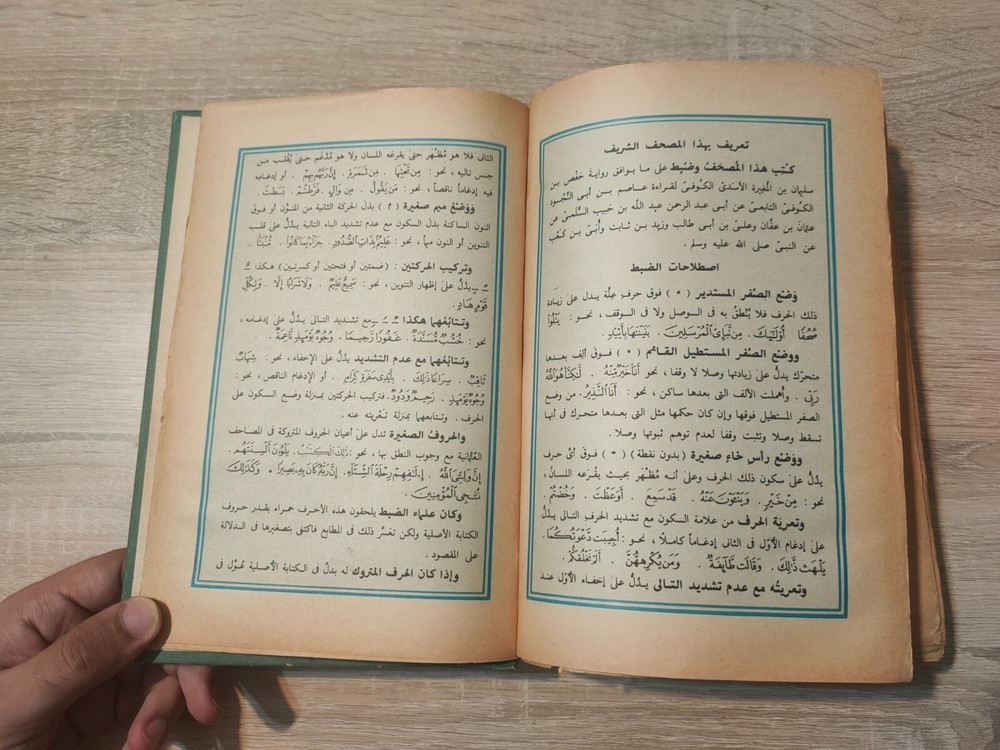 تعريف بهذا المصحف الشريف
كُتِب هذا المُصحَفُ وضُبِط على ما يوافق رواية حَفْص بن
سليمان بن المُغيرة الأسَدىّ الكوفىّ لقراءة عاصم بن أبى النَّجُود
الكوفىّ التابعىّ عن أبى عبد الرحمن عبد الله بن حَبيب السُّلَمىّ عن
عثمان بن عفّان وعلىّ بن أبى طالب وزيد بن ثابت وأُبَىّ بن كَعْب
عن النبىّ صلى الله عليه وسلم .
اصطلاحات الضبط
وَضْع الصِّفر المستدير ( ه ) فوق حرفِ عِلّة يدل على زيادة
ذلك الحرف فلا يُنطَقُ به فى الوصل ولا فى الوقف ، نحو : يَتْلُواْ
صُحُفًا . أُوْلَٰٓئِكَ . مِن نَّبَإِىْ ٱلْمُرْسَلِينَ . بَنَيْنَٰهَا بِأَيْيْدٍ .
ووضع الصّفر المستطيل القائم ( ٥ ) فوق ألف بعدها
متحرّك يدلّ على زيادتها وصلا لا وقفا ، نحو أَنَا۠ خَيْرٌ مِّنْهُ . لَّٰكِنَّا۠ هُوَ ٱللَّهُ
رَبِّى . وأُهملت الألف التى بعدها ساكن ، نحو : أَنَا ٱلنَّذِيرُ . من وضع
الصفر المستطيل فوقها وإن كان حكمها مثل التى بعدها متحرك فى أنها
تسقط وصلا وتثبت وقفا لعدم توهم ثبوتها وصلا .
ووَضْع رأس خاءٍ صغيرة ( بدون نقطة ) ( ح ) فوق أىّ حرف
يدُلّ على سكون ذلك الحرف وعلى أنه مُظْهَر بحيث يقْرَعه اللسان ،
نحو : مِنْ خَيْرٍ . وَيَنْـَٔوْنَ عَنْهُ . قَدْ سَمِعَ . أَوَعَظْتَ . وَخُضْتُمْ .
وتعريَة الحرف من علامة السكون مع تشديد الحرف التالى يدُلّ
على إدغام الأوّل فى الثانى إدغاما كاملا ، نحو : أُجِيبَت دَّعْوَتُكُمَا .
يَلْهَث ذَّٰلِكَ . وَقَالَت طَّآئِفَةٌ . وَمَن يُكْرِههُّنَّ . أَلَمْ نَخْلُقكُّم .
وتعريتُه مع عدم تشديد التالى يدُلّ على إخفاء الأوّل عند
الثانى فلا هو مُظْهَر حتى يقرعه اللسان ولا هو مُدْغَم حتى يُقلب من
جنس تاليه ، نحو : مِن تَحْتِهَا . مِن ثَمَرَةٍ . إِنَّ رَبَّهُم بِهِمْ . أو إدغامه
فيه إدغاما ناقصا ، نحو : مَن يَقُولُ . مِن وَالٍ . فَرَّطتُمْ . بَسَطتَ .
وَوَضْعُ ميم صغيرة ( م ) بدَلَ الحركة الثانية من المنوّن أو فوق
النون الساكنة بدل السكون مع عدم تشديد الباء التالية يدلّ على قلب
التنوين أو النون ميما ، نحو : عَلِيمٌۢ بِذَاتِ ٱلصُّدُورِ . جَزَآءَۢ بِمَا كَانُواْ . مُّنۢبَثًّا .
وتركيب الحركتين : ( ضمتين أو فتحتين أو كسرتين ) هكذا
يدُلّ على إظهار التنوين ، نحو : سَمِيعٌ عَلِيمٌ . وَلَا شَرَابًا إِلَّا . وَلِكُلِّ
قَوْمٍ هَادٍ .
وتتابُعُهما هكذا مع تشديد التالى يدلّ على إدغامه ،
نحو : خُشُبٌ مُّسَنَّدَةٌ . غَفُورًا رَّحِيمًا . وُجُوهٌ يَوْمَئِذٍ نَّاعِمَةٌ .
وتتابُعُهما مع عدم التشديد يدُلّ على الإخفاء ، نحو : شِهَابٌ
ثَاقِبٌ . سِرَاعًا ذَٰلِكَ . بِأَيْدِى سَفَرَةٍ كِرَامٍ . أو الإدغام الناقص ، نحو :
وُجُوهٌ يَوْمَئِذٍ . رَحِيمٌ وَدُودٌ . فتركيب الحركتين بمنزلة وضع السكون على
الحرف . وتتابعهما بمنزلة تعْريَته عنه .
والحروفُ الصغيرة تدل على أعيان الحروف المتروكة فى المصاحف
العُثمانية مع وجوب النطق بها ، نحو : ذَٰلِكَ ٱلْكِتَٰبُ . يَلْوُۥنَ أَلْسِنَتَهُم .
إِنَّ وَلِـِّۧىَ ٱللَّهُ . إِۦلَٰفِهِمْ رِحْلَةَ ٱلشِّتَآءِ . إِنَّ رَبَّهُۥ كَانَ بِهِۦ بَصِيرًا . وَكَذَٰلِكَ
نُـۨجِى ٱلْمُؤْمِنِينَ .
وكان علماء الضبط يلحقون هذه الأحرف حمراء بقدر حروف
الكتابة الأصلية ولكن تعسَّر ذلك فى المطابع فاكتفى بتصغيرها فى الدلالة
على المقصود .
وإذا كان الحرف المتروك له بدلٌ فى الكتابة الأصلية عُوّل فى